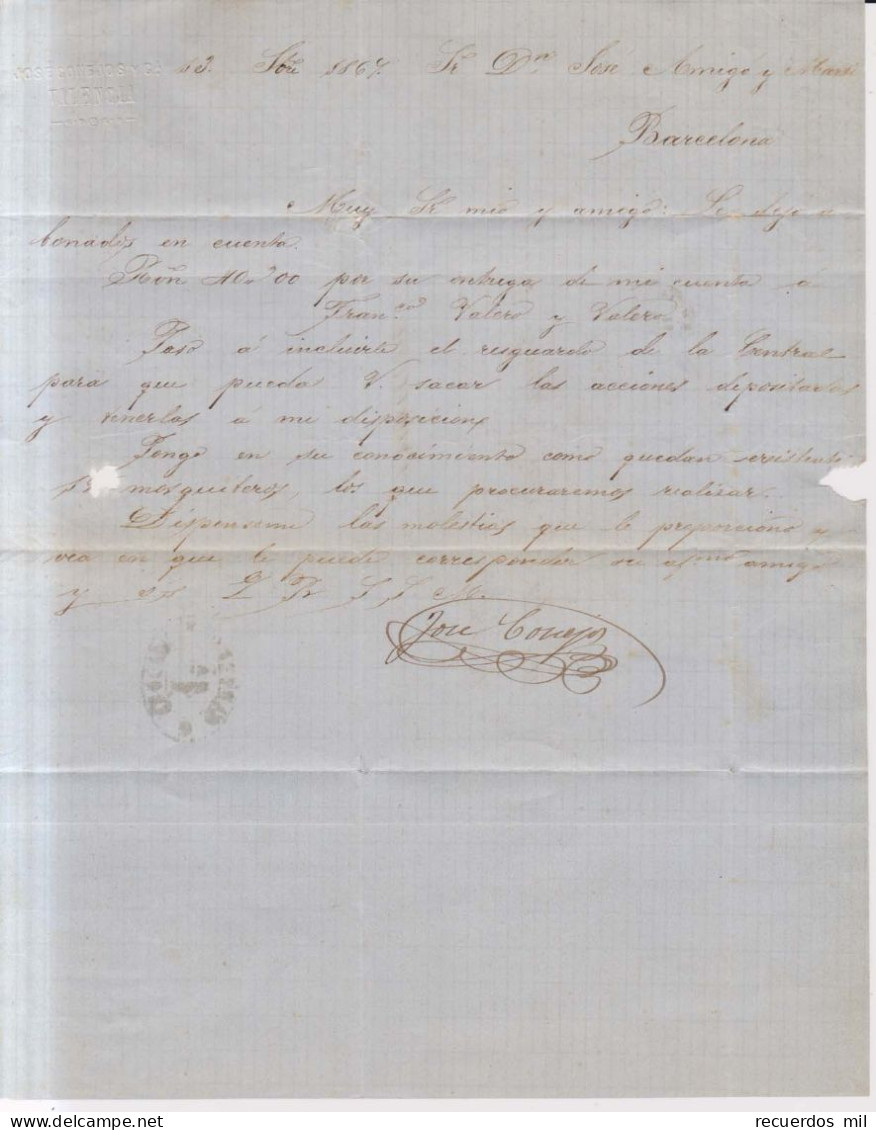 13. Sbre 1867. Sr. Dn José Amigó y
Barcelona
Muy Sr. mio y amigo: Le dejo a
bonados en cuenta.
Rvn 40.200 por su entrega de mi cuenta á
Franco. Valero y Valero
Paso á incluirle el resguardo de la Central
para que pueda V. sacar las acciones depositadas
y tenerlas á mi disposicion
Pongo en su conocimiento como quedan
mosquiteros, los que procuraremos realisar.
Dispenseme las molestias que le proporciono y
vea en que le puede corresponder su afmo amigo
y
José Conejos
VALENCIA
recuerdos mil